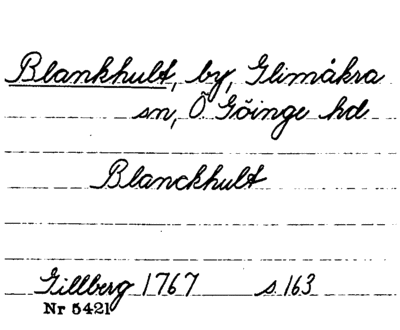 Blankhult, by, Glimåkra
sn, Ö Göinge hd
Blanckhult
Gillberg 1767 s 163
Nr 5421